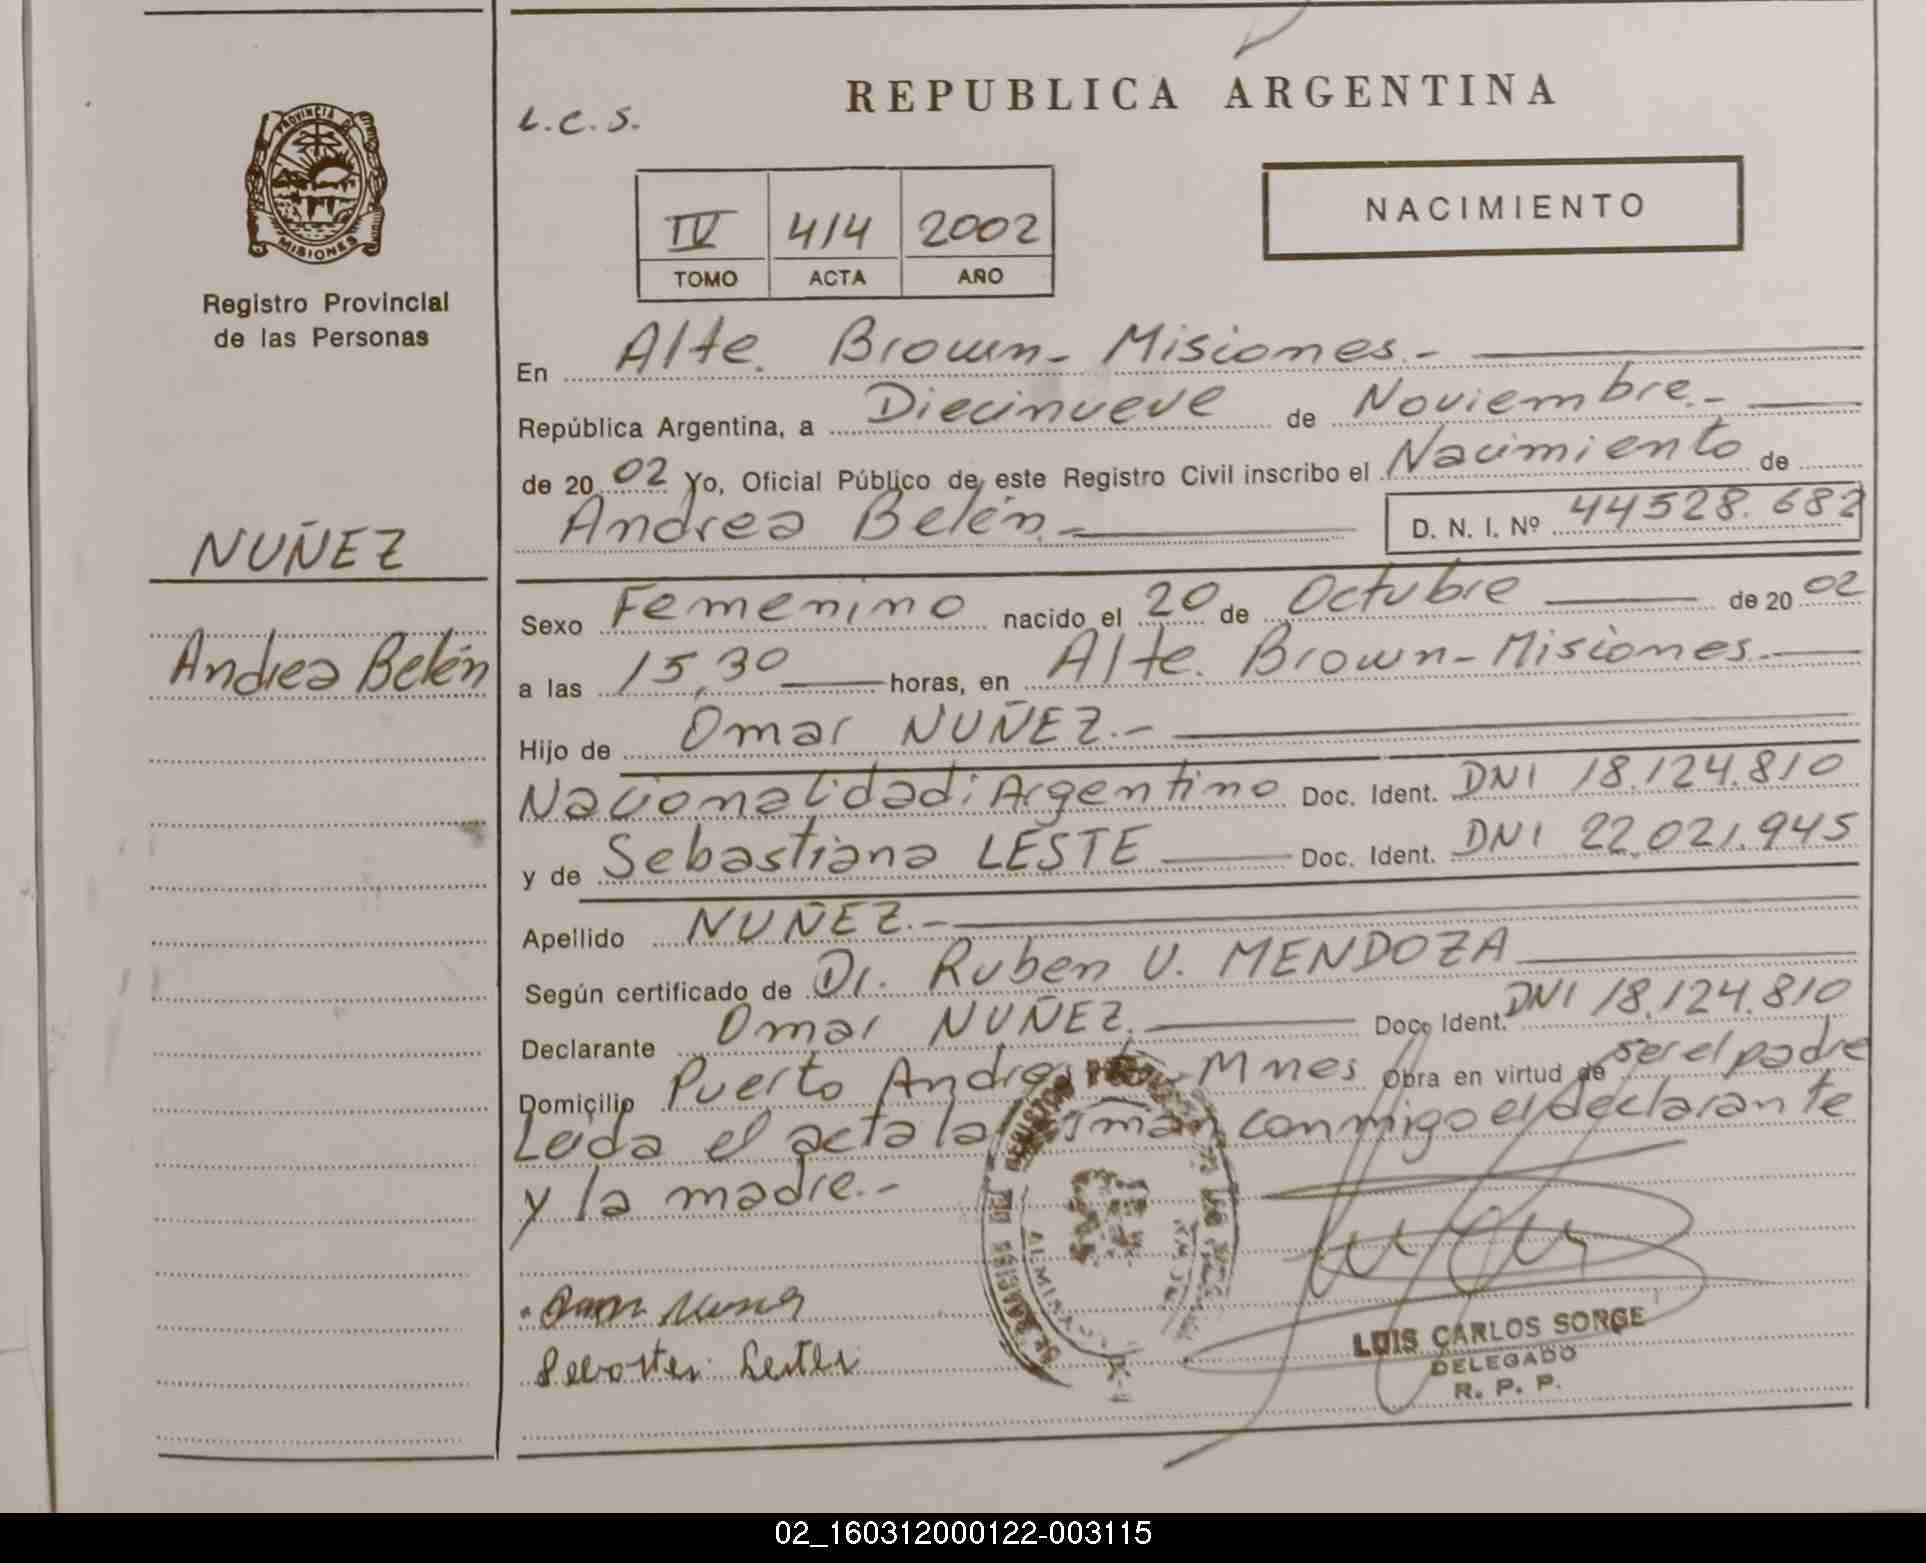 REPUBLICA ARGENTINA
L.C.S.
PROVINCIA DE
MISIONES
Registro Provincial
de las Personas
IV 414 2002
TOMO ACTA AÑO
NACIMIENTO
NUÑEZ
Andrea Belén
En Alte. Brown - Misiones.-
República Argentina, a Diecinueve de Noviembre.-
de 20 02 Yo, Oficial Público de este Registro Civil inscribo el Nacimiento de
Andrea Belén.- D. N. I. Nº 44528.682
Sexo Femenino nacido el 20 de Octubre de 20 02
a las 15,30 horas, en Alte. Brown - Misiones.-
Hijo de Omar NUÑEZ.-
Nacionalidad: Argentino Doc. Ident. DNI 18.124.810
y de Sebastiana LESTE Doc. Ident. DNI 22.021.945
Apellido NUÑEZ.-
Según certificado de Dr. Ruben U. MENDOZA
Declarante Omar NUÑEZ. Doc. Ident. DNI 18.124.810
Domicilio Puerto Mnes Obra en virtud de ser el padre
Leida el acta la firman conmigo el declarante
y la madre.-
LUIS CARLOS SORGE
DELEGADO
R. P. P.
02_160312000122-003115